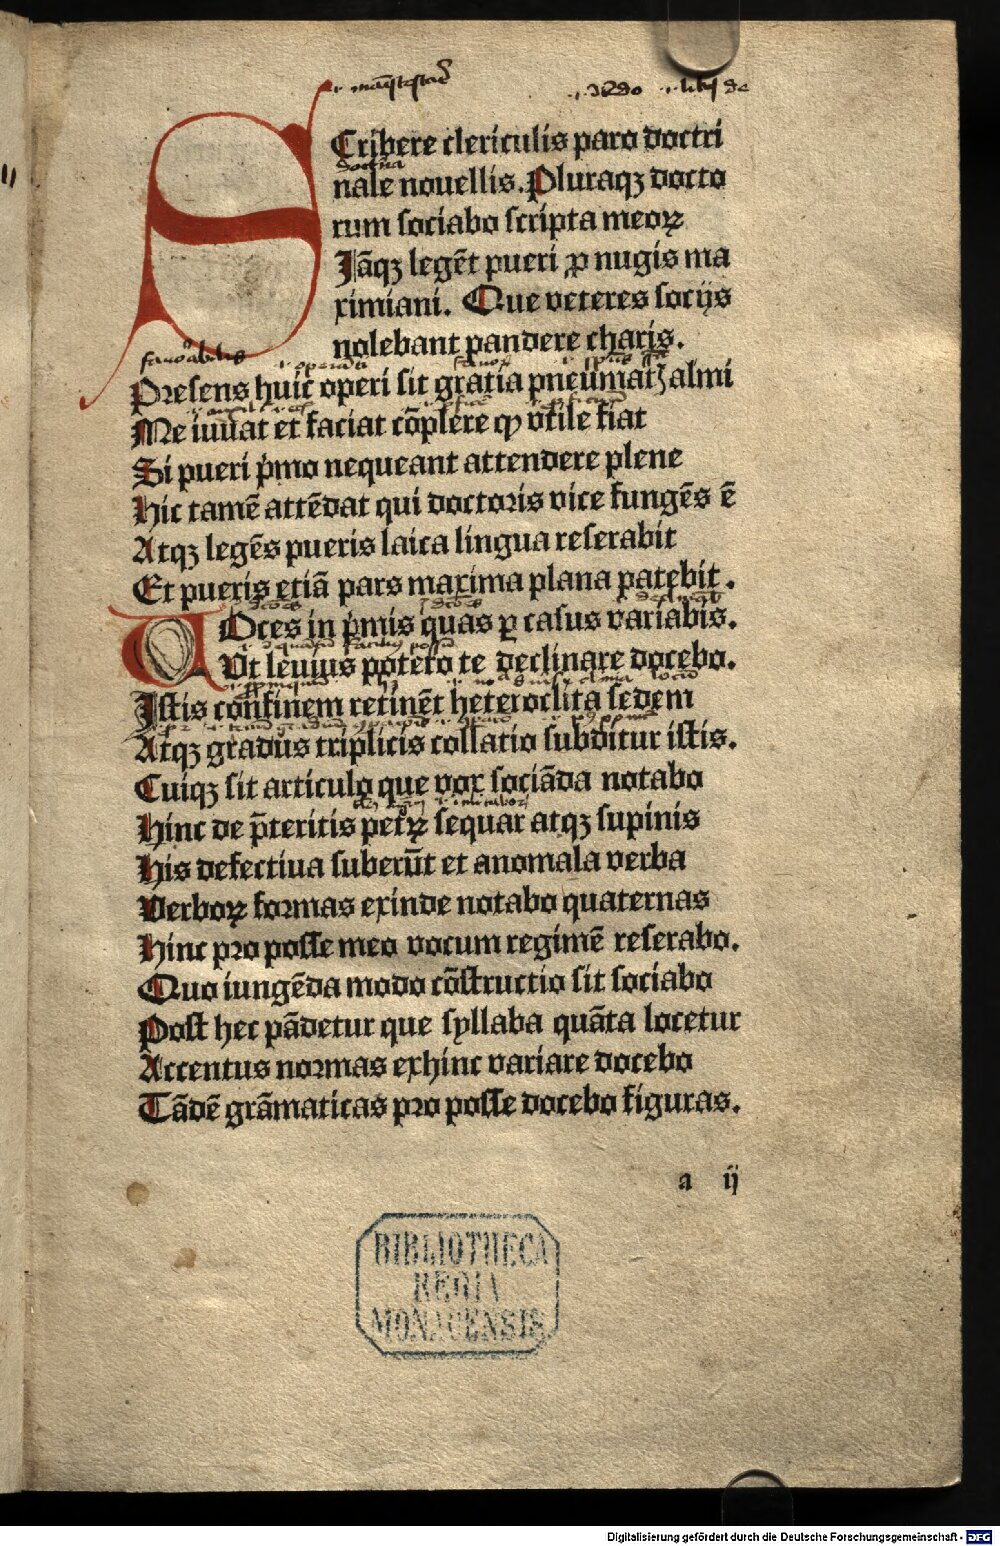 SCribere clericulis paro doctri
nale nouellis. Pluraqꝫ docto
rum sociabo scripta meoꝝ
Jāqꝫ legēt pueri ꝓ nugis ma
ximiani. Que veteres socijs
nolebant pandere charis.
fauorabilis
Presens huic operi sit gratia pneumatꝭ almi
Me iuuat et faciat cōplere ꝙ vtile fiat
Si pueri p̄mo nequeant attendere plene
Hic tamē attēdat qui doctoris vice fungēs ē
Atqꝫ legēs pueris laica lingua reserabit
Et pueris etiā pars maxima plana patebit.
VOces in p̄mis quas ꝑ casus variabis.
Vt leuius potero te declinare docebo.
Istis confinem retinēt heteroclita sedem
Atqꝫ gradus triplicis collatio subditur istis.
Cuiqꝫ sit articulo que vox sociāda notabo
Hinc de p̄teritis petrꝝ sequar atqꝫ supinis
His defectiua suberūt et anomala verba
Verboꝝ formas exinde notabo quaternas
Hinc pro posse meo vocum regimē reserabo.
Quo iungēda modo cōstructio sit sociabo
Post hec pādetur que syllaba quāta locetur
Accentus normas exhinc variare docebo
Tādē grāmaticas pro posse docebo figuras.
a ij
BIBLIOTHECA
REGIA
MONACENSIS
Digitalisierung gefördert durch die Deutsche Forschungsgemeinschaft - DFG